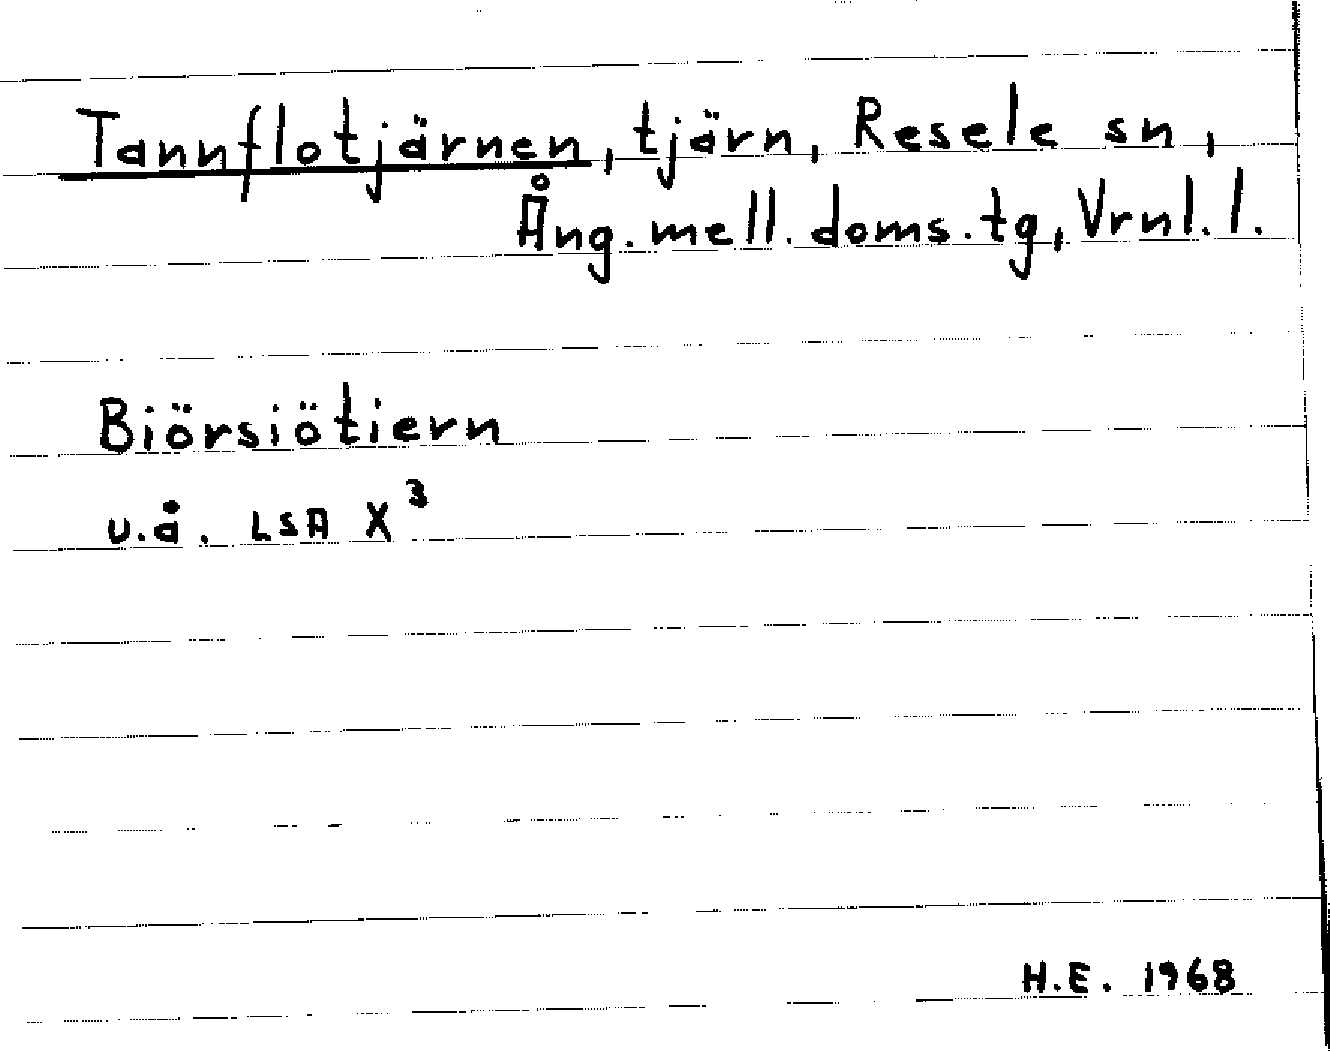 Tannflotjärnen, tjärn, Resele sn,
Ång. mell. doms. tg, Vrnl. l.
Biörsiötiern
u.å. LSA X³
H.E. 1968